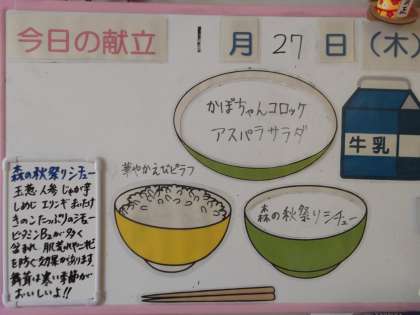 今日の献立 1月27日(木)
かぼちゃんコロッケ
アスパラサラダ
牛乳
華やかえびピラフ
森の秋祭りシチュー
森の秋祭りシチュー
玉葱 人参 じゃが芋
しめじ エリンギ まいたけ
きのこたっぷりのシチュー
ビタミンB₂が多く
含まれ 肌荒れや口内炎
を防ぐ効果が有ります
舞茸は寒い季節が
おいしいよ!!